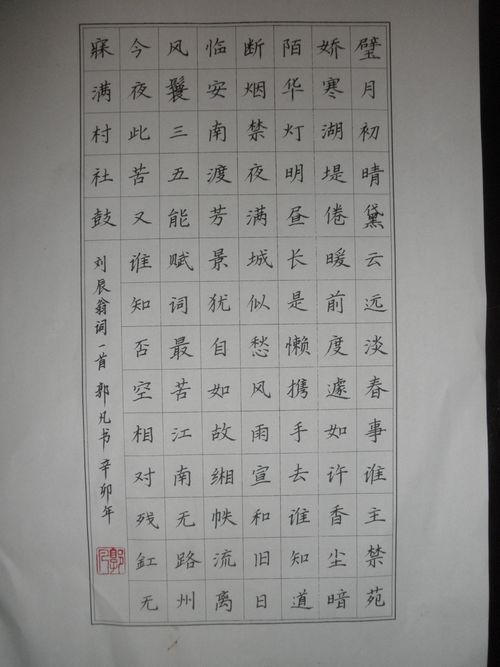 璧月初晴黛云远淡春事谁主禁苑
娇寒湖堤倦暖前度遽如许香尘暗
陌华灯明昼长是懒携手去谁知道
断烟禁夜满城似愁风雨宣和旧日
临安南渡芳景犹自如故缃帙流离
风鬟三五能赋词最苦江南无路州
今夜此苦又谁知否空相对残釭无
寐满村社鼓
刘辰翁词一首 郭凡书 辛卯年
郭凡